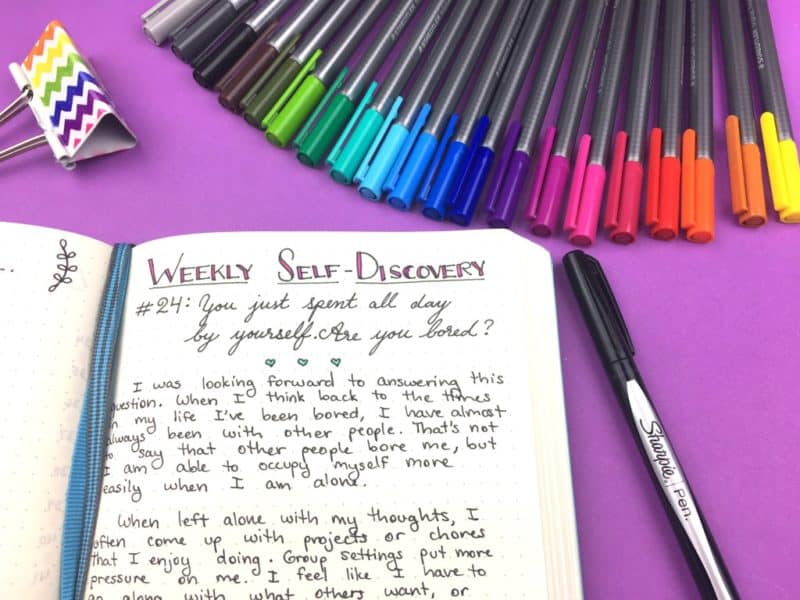 WEEKLY SELF-DISCOVERY
#24: You just spent all day
by yourself. Are you bored?
I was looking forward to answering this
question. When I think back to the times
in my life I've been bored, I have almost
always been with other people. That's not
to say that other people bore me, but
I am able to occupy myself more
easily when I am alone.
When left alone with my thoughts, I
often come up with projects or chores
that I enjoy doing. Group settings put more
pressure on me. I feel like I have to
go along with what others want, or
Sharpie PEN.
STAEDTLER